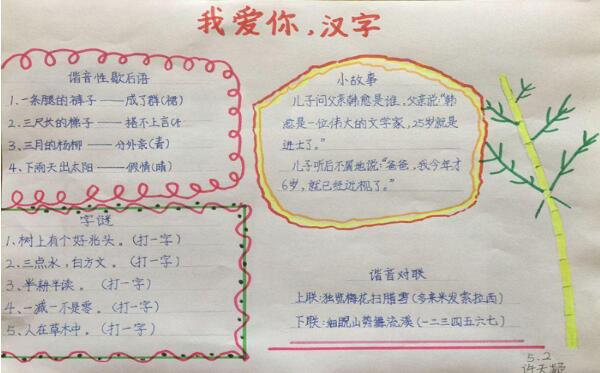 我爱你,汉字
谐音性歇后语
1、一条腿的裤子——成了群(裙)
2、三尺长的梯子——搭不上言(
3、三月的杨柳——分外亲(青)
4、下雨天出太阳——假情(晴)
小故事
儿子问父亲韩愈是谁,父亲说“韩
愈是一位伟大的文学家,25岁就是
进士了。”
儿子听后不屑地说:“爸爸,我今年才
6岁,就已经近视了。”
字谜
1、树上有个好兆头。(打一字)
2、三点水,白方文。(打一字)
3、半耕半读。(打一字)
4、一减一不是零。(打一字)
5、人在草木中。(打一字)
谐音对联
上联:独览梅花扫腊雪(多来米发索拉西)
下联:细睨山势舞流溪(一二三四五六七)
5.2
许天